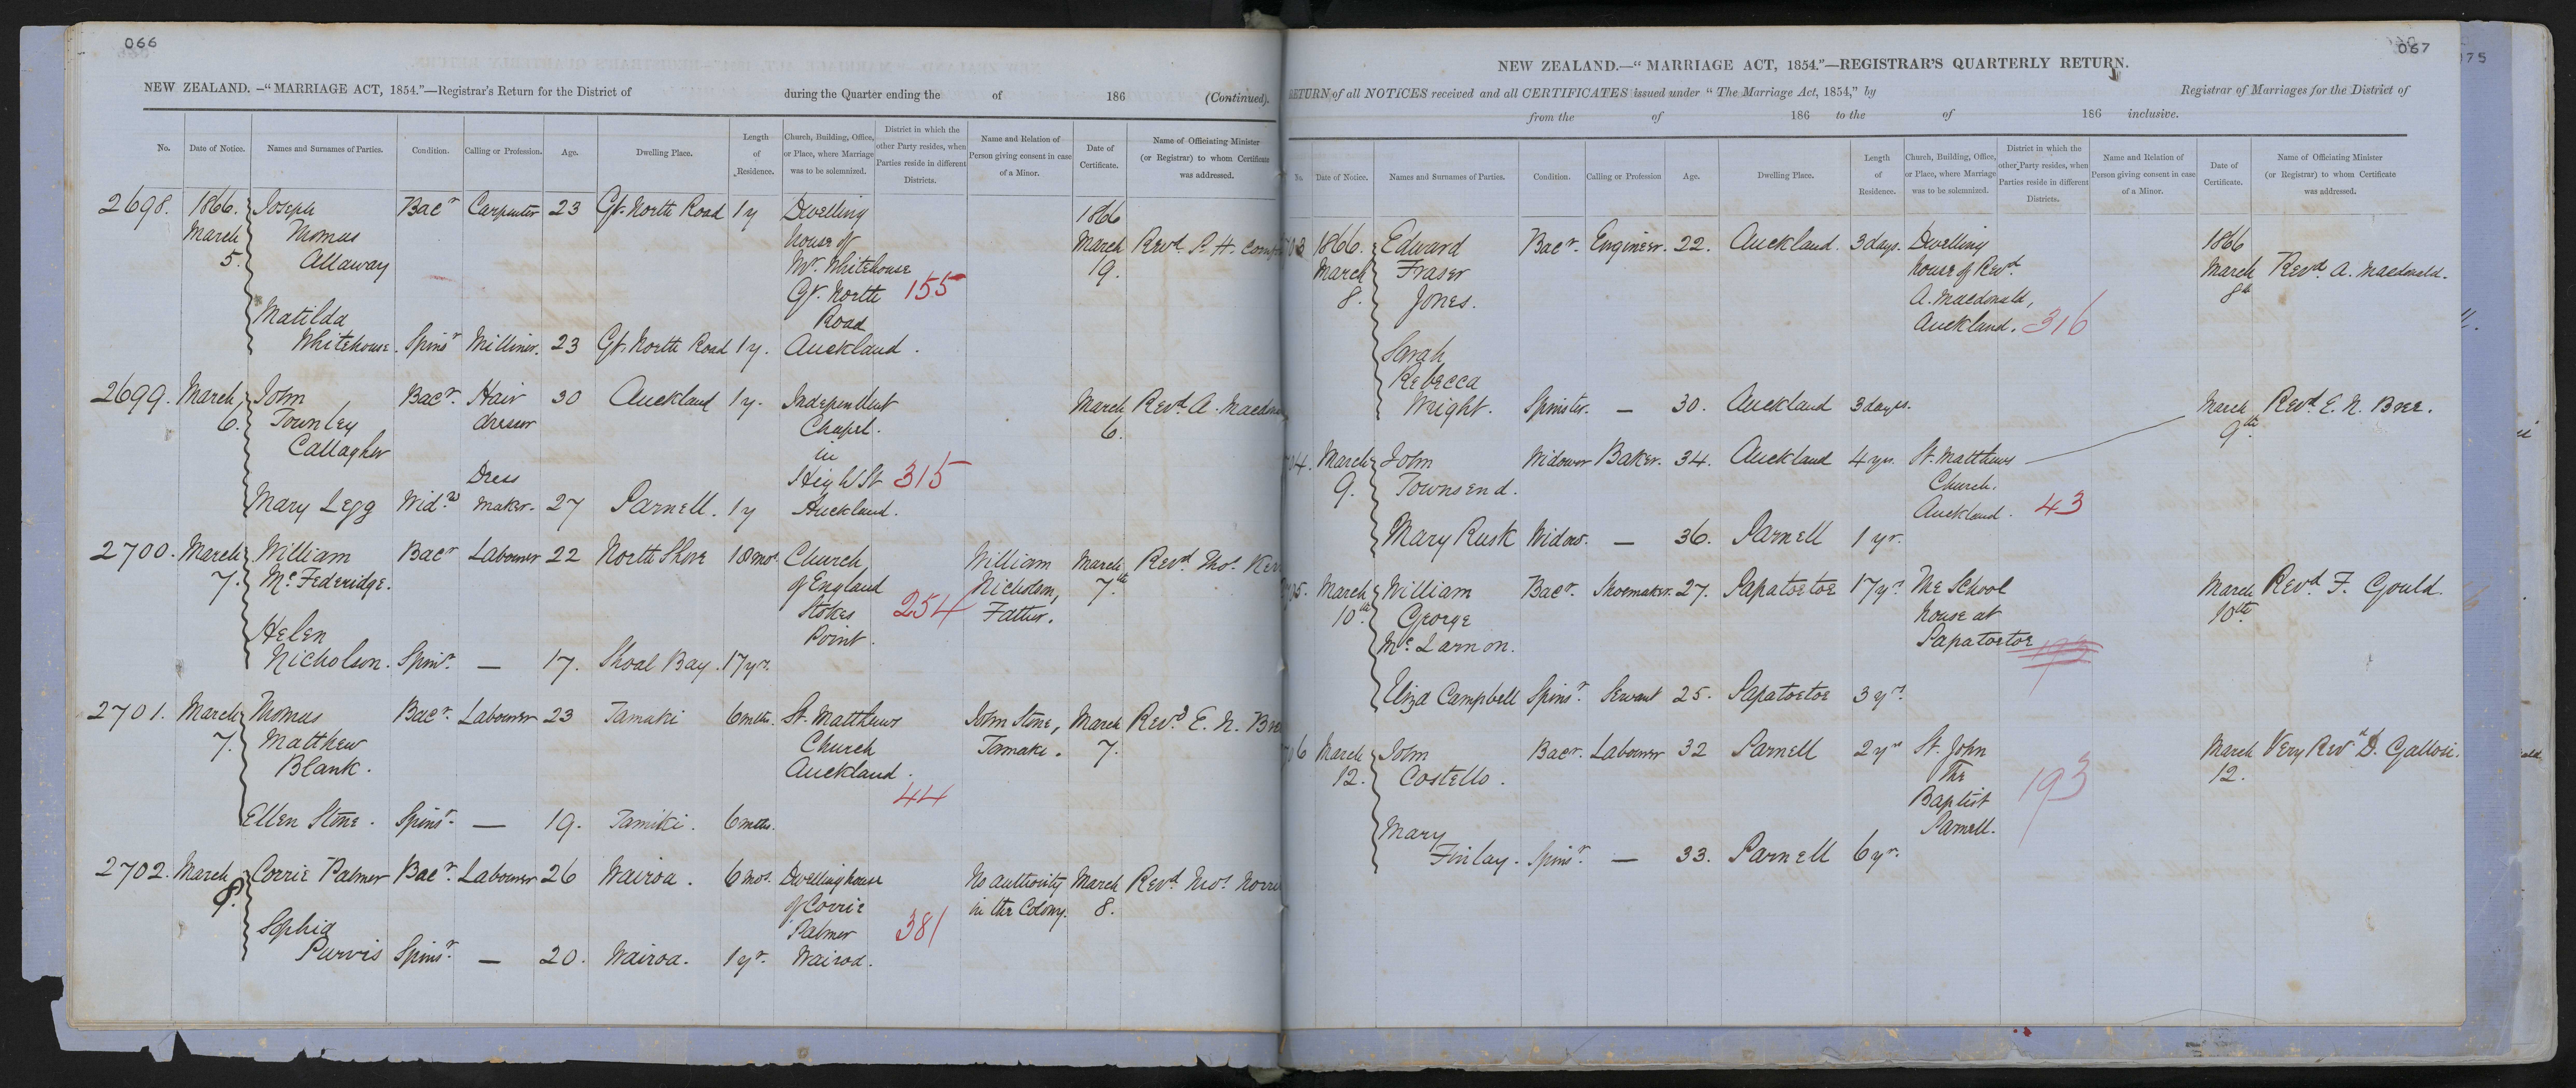 066
NEW ZEALAND. —“MARRIAGE ACT, 1854.”—Registrar's Return for the District of during the Quarter ending the of 186 (Continued).
No. Date of Notice. Names and Surnames of Parties. Condition. Calling or Profession. Age. Dwelling Place. Length of Residence. Church, Building, Office, or Place, where Marriage was to be solemnized. District in which the other Party resides, when Parties reside in different Districts. Name and Relation of Person giving consent in case of a Minor. Date of Certificate. Name of Officiating Minister (or Registrar) to whom Certificate was addressed.
2698. 1866. Joseph Bacr Carpenter 23 Gt. North Road 1y Dwelling 1866
March Thomas house of March Revd. R. H.
5. Allaway Mr. Whitehouse 19.
Gt. North 155
Matilda Road
Whitehouse. Spinsr Milliner. 23 Gt. North Road 1y. Auckland.
2699. March John Bacr. Hair 30 Auckland 1y. Independent March Revd. A.
6. Townley dresser Chapel. 6.
Callagher in
Dress High St 315
Mary Legg Widw maker. 27 Parnell. 1y Auckland.
2700. March William Bacr Labourer 22 North Shore 18mos. Church William March Revd. Thos.
7. McFederidge. of England Nicholson, 7th
Stokes 254 Father.
Helen Point.
Nicholson. Spinr. — 17. Shoal Bay. 17yrs.
2701. March Thomas Bacr. Labourer 23 Tamaki 6mths. St. Matthews John Stone, March Revd. E. N.
7. Matthew Church Tamaki. 7.
Blank. Auckland.
44
Ellen Stone. Spinsr. — 19. Tamiki. 6mths.
2702. March Corrie Palmer Bacr. Labourer 26 Wairoa. 6mos. Dwelling house No authority March Revd.
8. of Corrie in the Colony. 8.
Sophia Palmer 381
Purvis Spinsr. — 20. Wairoa. 1yr. Wairoa.
067
NEW ZEALAND.—“MARRIAGE ACT, 1854.”—REGISTRAR'S QUARTERLY RETURN.
RETURN of all NOTICES received and all CERTIFICATES issued under “The Marriage Act, 1854,” by Registrar of Marriages for the District of
from the of 186 to the of 186 inclusive.
No. Date of Notice. Names and Surnames of Parties. Condition. Calling or Profession Age. Dwelling Place. Length of Residence. Church, Building, Office, or Place, where Marriage was to be solemnized. District in which the other Party resides, when Parties reside in different Districts. Name and Relation of Person giving consent in case of a Minor. Date of Certificate. Name of Officiating Minister (or Registrar) to whom Certificate was addressed.
1866. Edward Bacr. Engineer. 22. Auckland. 3days. Dwelling 1866
March Fraser house of Revd. March Revd. A. Macdonald.
8. Jones. A. Macdonald, 8th
Auckland. 316
Sarah
Rebecca
Wright. Spinster. — 30. Auckland 3days. March Revd E. N. Bree.
9th.
March John Widower Baker. 34. Auckland 4yrs. St. Matthews
9. Townsend. Church.
Auckland. 43
Mary Rusk Widow. — 36. Parnell 1yr.
March William Bacr. Shoemaker. 27. Papatoetoe 17yrs The School March Revd. F. Gould.
10th. George house at 10th.
McLarnon. Papatoetoe 193
Eliza Campbell Spinsr. Servant 25. Papatoetoe 3yrs
March John Bacr. Labourer 32 Parnell 2yrs St. John March Very Revd D.
12. Costello. The 12.
Baptist 193
Mary Parnell.
Finlay. Spinsr. — 33. Parnell 6yr.